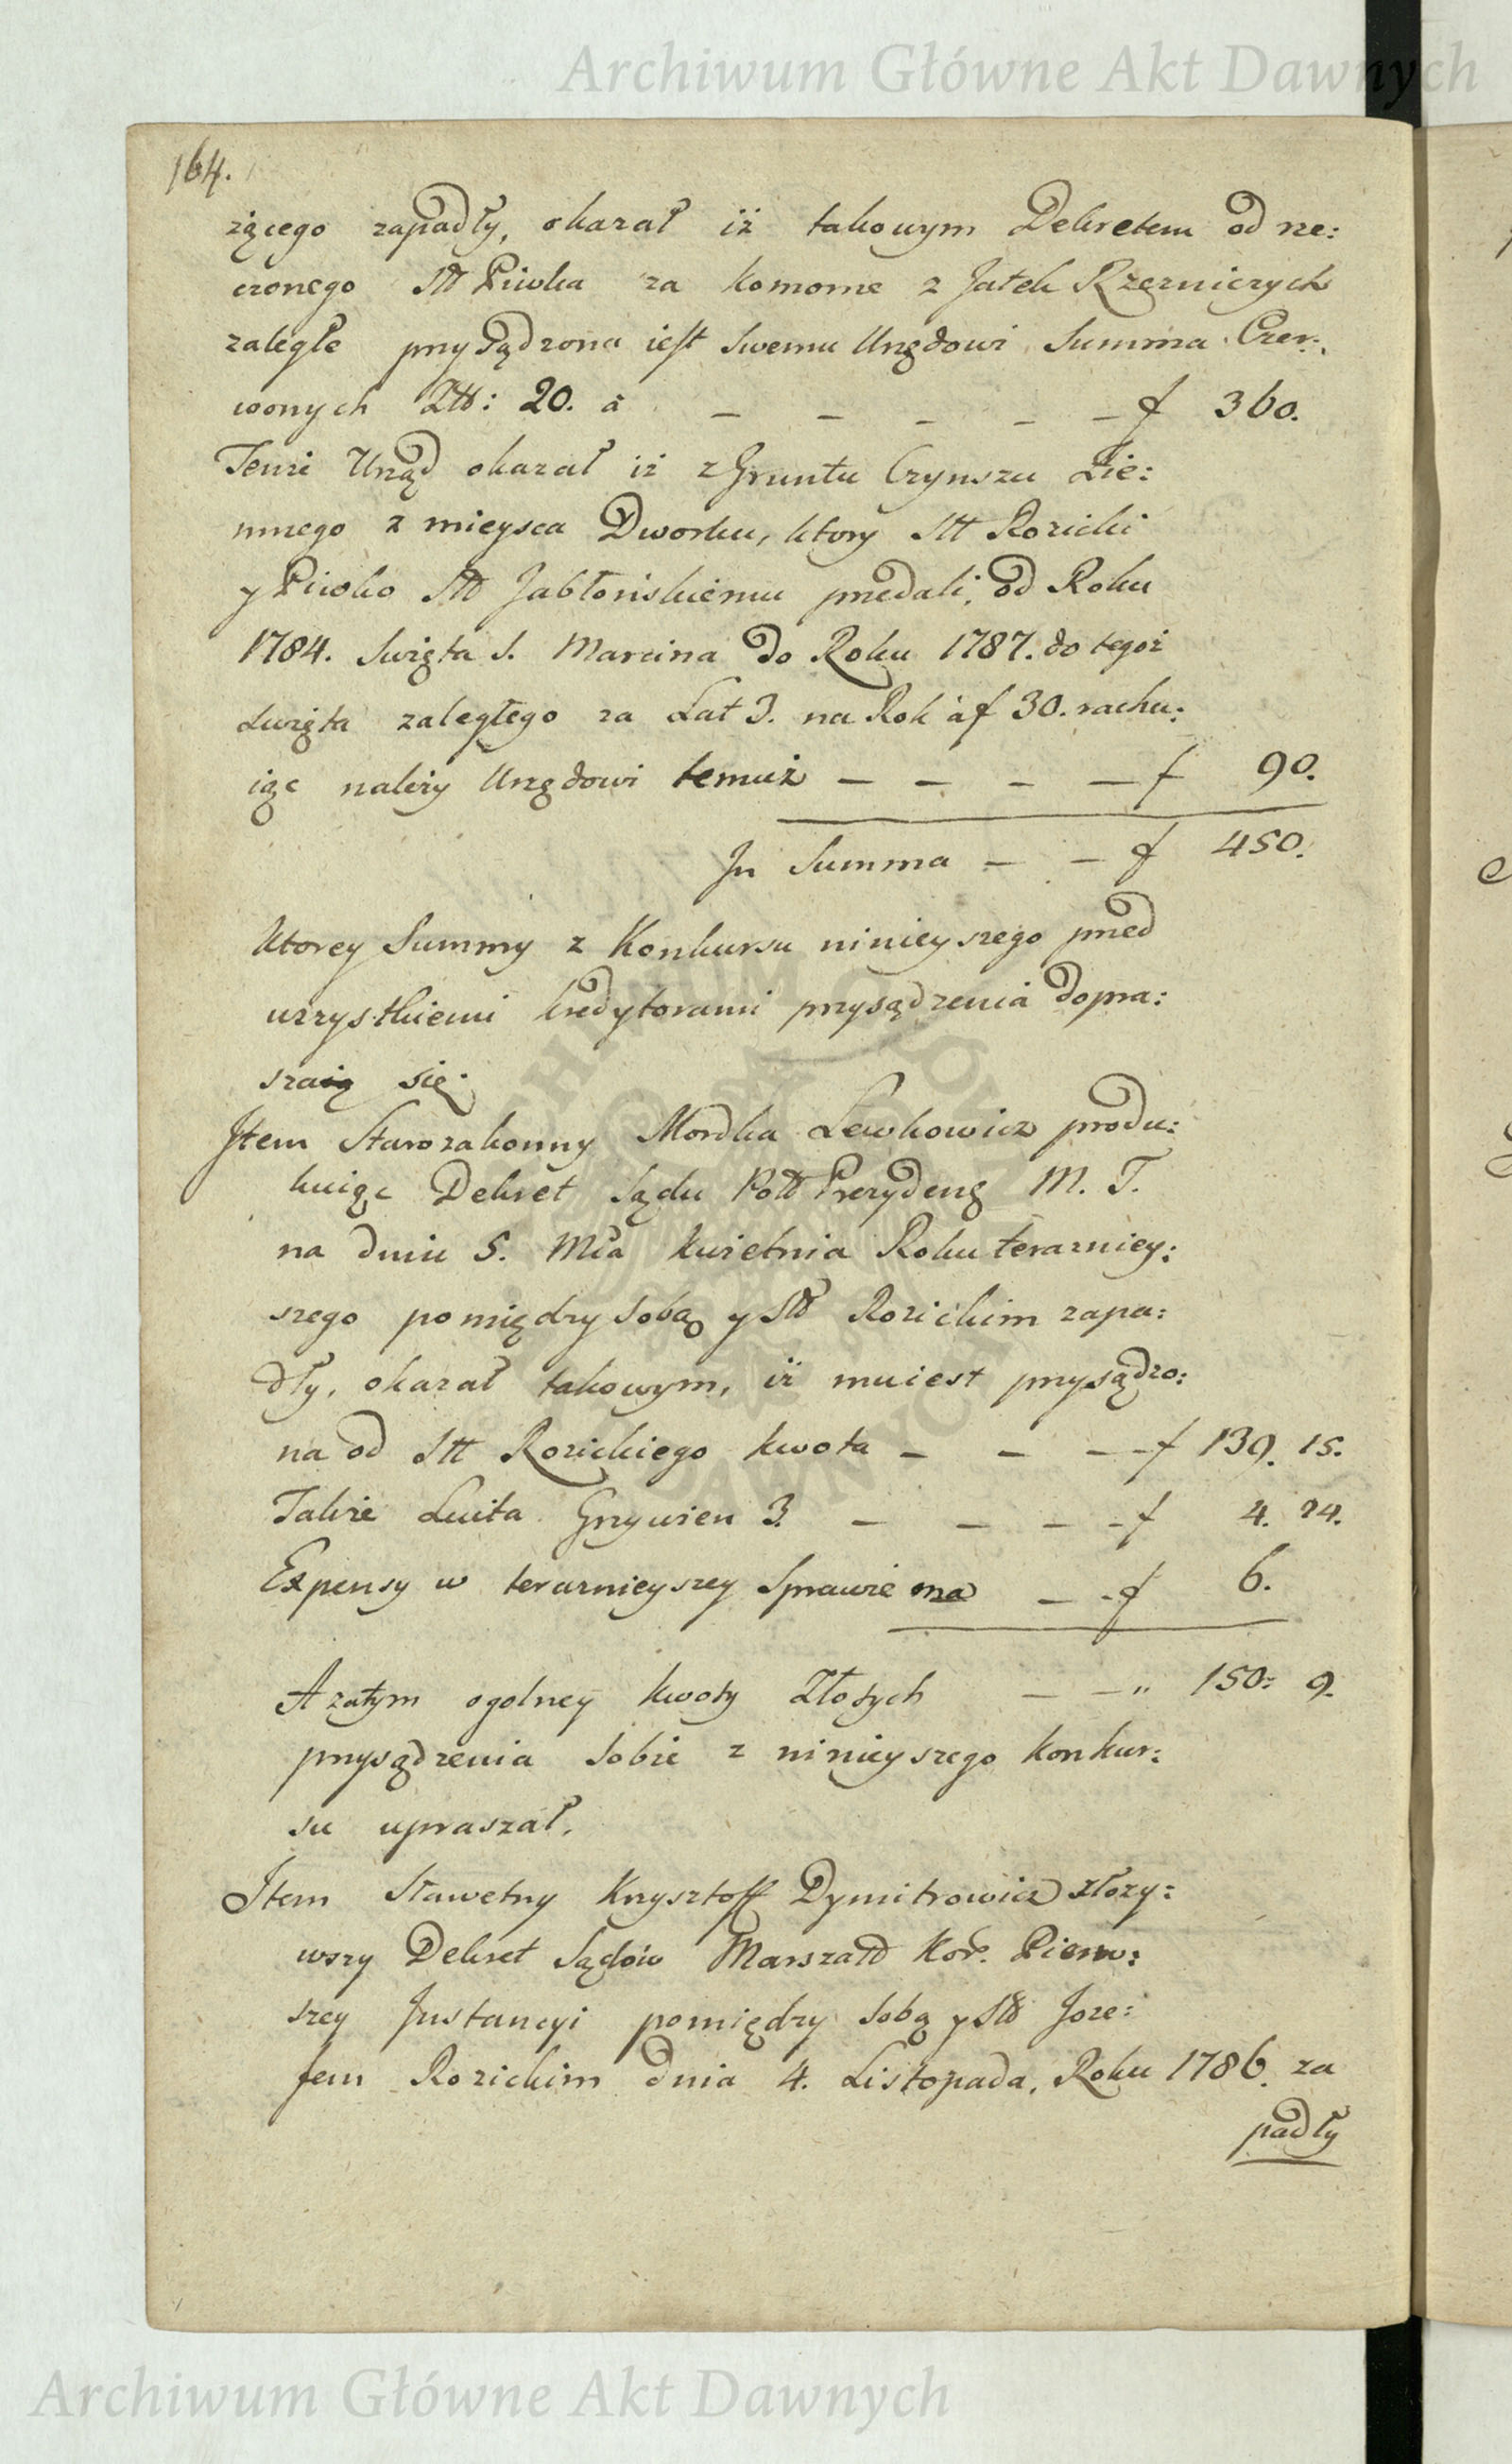 Archiwum Główne Akt Dawnych
164.
żącego zapadły, okazał iż takowym Dekretem od rze:
czonego Stt Piwka za komorne z Jatek Rzezniczych
zaległe przysądzona iest Swemu Urzędowi Summa Czer:
wonych Ztt: 20. à — — — — — f 360.
Tenże Urząd okazał iż z Gruntu Czynszu Zie:
mnego z mieysca Dworku, ktory Stt Rozicki
y Piwko Stt Jabłońskiemu przedali, od Roku
1784. Swięta S. Marcina do Roku 1787. do tegoż
Swięta zaległego za Lat 3. na Rok à f 30. rachu:
iąc należy Urzędowi temuż — — — — f 90.
In Summa — — f 450.
Ktorey Summy z Konkursu ninieyszego przed
wszystkiemi kredytorami przysądzenia dopra:
szaią się.
Item Starozakonny Mordka Lewkowicz produ:
kuiąc Dekret Sądu Pott Prezydeng M. T.
na dniu 5. Mca kwietnia Roku teraźniey:
szego pomiędzy Sobą y Stt Rozickim zapa:
dły, okazał takowym, iż mu iest przysądzo:
na od Stt Rozickiego kwota — — — f 139. 15.
Także Luita Grzywien 3. — — — — f 4. 24.
Expensy w teraznieyszey Sprawie ma — — f 6.
A zatym ogolney kwoty Złotych — — " 150: 9.
przysądzenia Sobie z ninieyszego Konkur:
su upraszał.
Item Sławetny Krzysztoff Dymitrowicz złoży:
wszy Dekret Sądów Marszałd Kor. Pierw:
szey Instancyi pomiędzy Sobą y Stt Joze:
fem Rozickim dnia 4. Listopada, Roku 1786. za
padły
Archiwum Główne Akt Dawnych